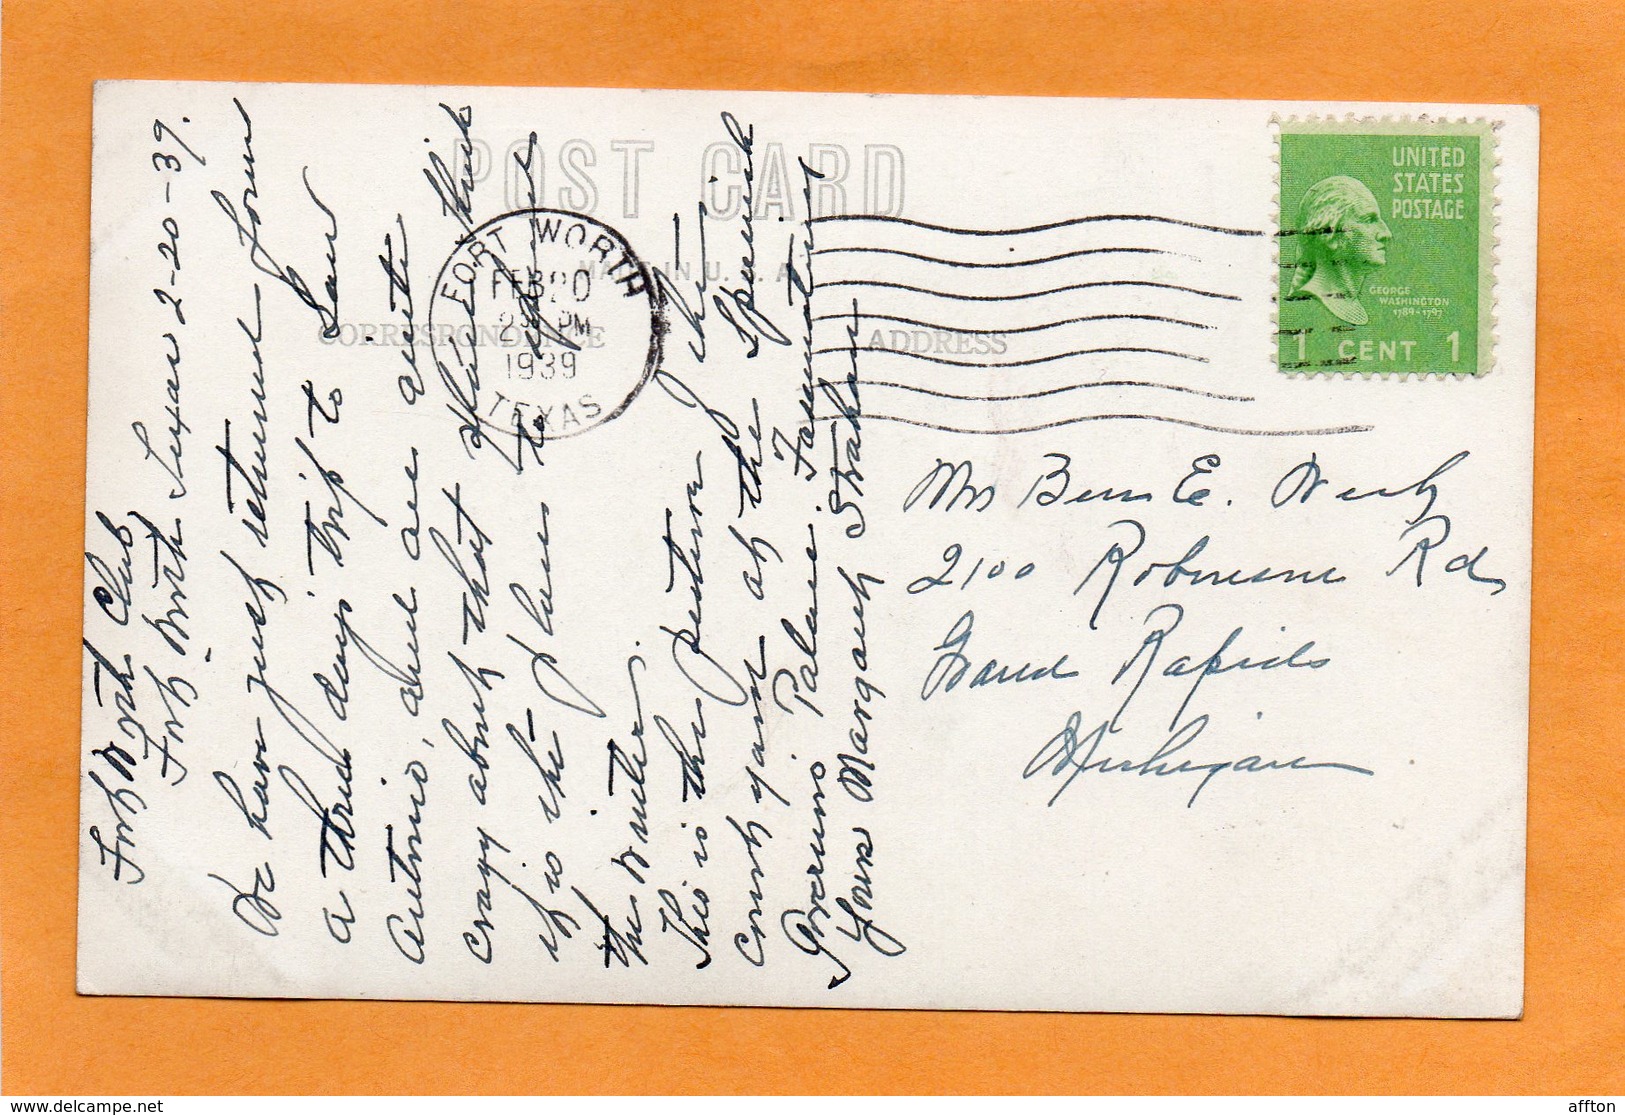 POST CARD
MADE IN U.S.A.
CORRESPONDENCE
ADDRESS
FORT WORTH
FEB 20
PM
1939
TEXAS
UNITED
STATES
POSTAGE
GEORGE
WASHINGTON
1789-1797
1 CENT 1
Fort Worth Club,
Fort Worth Texas 2-20-39.
We have just returned from
a three days trip to San
Antonio, and are quite
crazy about that place think
it is the place to spend
the winter.
This is the picture I
court yard at the Spanish
Governors Palace.
Yours Margaret Graham
Mrs E.
2100 Robinson Rd
Grand Rapids
Michigan
affton